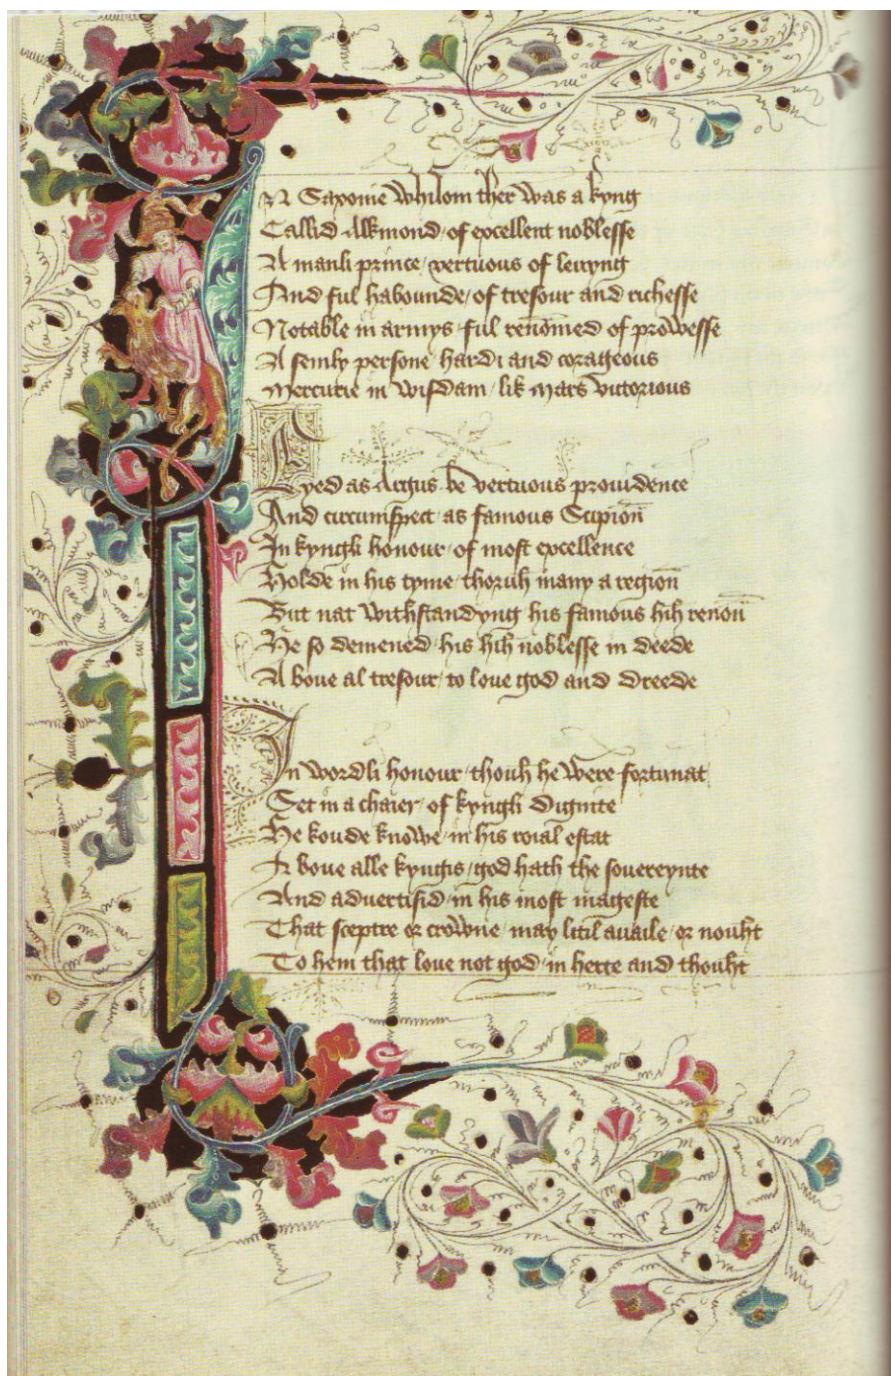 IN Saxonie whilom ther was a kyng
Callid Alkmond / of excellent noblesse
A manli prince / vertuous of levyng
And ful habounde / of tresour and richesse
Notable in armys / ful renomed of prowesse
A semly persone hardi and corageous
Mercurie in wisdam / lik Mars victorious
Eyed as Argus be vertuous providence
And circumspect as famous Scipion
In kyngli honour / of most excellence
Holde in his tyme / thoruh many a region
But nat withstandyng his famous hih renoun
He so demened / his hih noblesse in deede
A bove al tresour / to love god and dreede
In wordli honour / thouh he were fortunat
Set in a chaier / of kyngli dignite
He koude knowe / in his roial estat
A bove alle kyngis / god hath the sovereynte
And advertisid / in his most mageste
That sceptre or crowne / may litil availe / or nouht
To hem that love not god / in herte and thouht